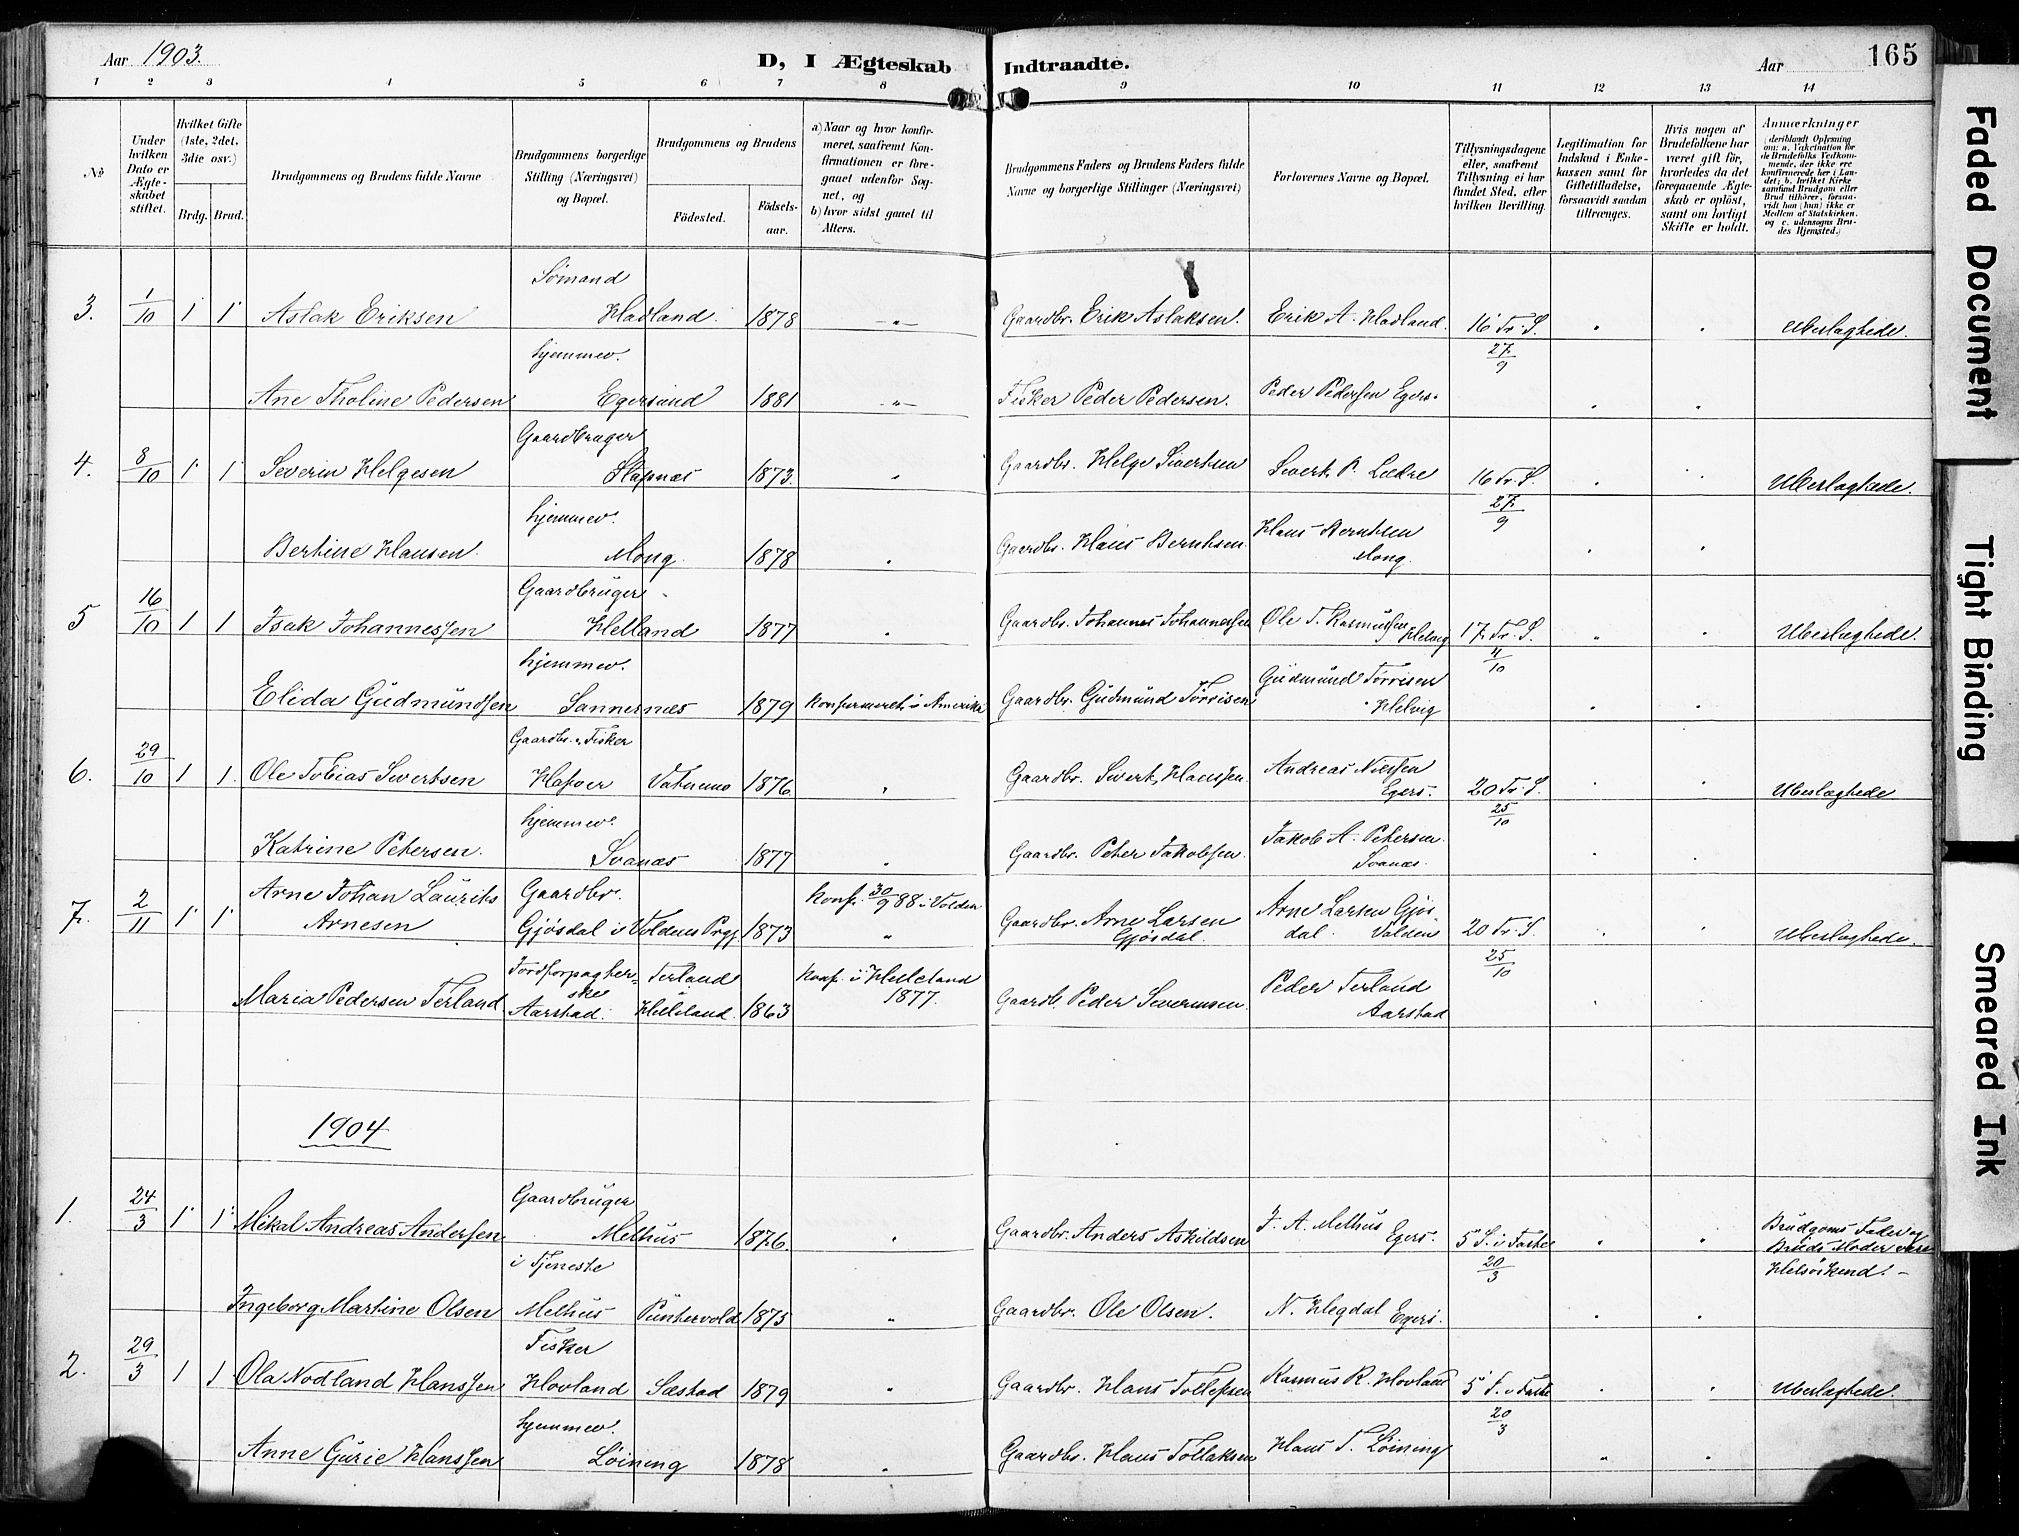 Aar 1903.
D, I Ægteskab Indtraadte.
Aar
165
1 2 3 4 5 6 7 8 9 10 11 12 13 14
№
Under hvilken Dato er Ægteskabet stiftet.
Hvilket Gifte (1ste, 2det, 3die osv.)
Brdg. Brud.
Brudgommens og Brudens fulde Navne
Brudgommens borgerlige Stilling (Næringsvei) og Bopæl.
Brudgommens og Brudens
Fødested.
Fødselsaar.
a) Naar og hvor konfirmeret, saafremt Konfirmationen er foregaaet udenfor Sognet, og
b) hvor sidst gaaet til Alters.
Brudgommens Faders og Brudens Faders fulde Navne og borgerlige Stillinger (Næringsvei)
Forlovernes Navne og Bopæl.
Tillysningsdagene eller, saafremt Tillysning ei har fundet Sted, efter hvilken Bevilling.
Legitimation for Indskud i Enkekassen samt for Giftetilladelse, forsaavidt saadan tiltrænges.
Hvis nogen af Brudefolkene har været gift før, hvorledes da det foregaaende Ægteskab er opløst, samt om lovligt Skifte er holdt.
Anmærkninger (deriblandt Oplysning om: a. Vakcination for de Brudefolks Vedkommende, der ikke ere konfirmerede her i Landet; b. hvilket Kirkesamfund Brudgom eller Brud tilhører, forsaavidt han (hun) ikke er Medlem af Statskirken. og c. udensogns Brudes Hjemsted.)
3. 1/10 1 1 Aslak Eriksen Sømand Hadland. 1878 " Gaardbr. Erik Aslaksen. Erik A. Hadland. 16 Tr. S. 27/9 " " Ubeslægtede.
Ane Tholine Pedersen hjemmev. Egersund 1881 " Fisker Peder Pedersen. Peder Pedersen Egers. " "
4. 8/10 1 1 Severin Helgesen Gaardbruger Stapnæs 1873. " Gaardbr. Helge Sivertsen Sivert P. Lædre 16 Tr. S. 27/9 " " Ubeslægtede.
Bertine Hansen. hjemmev. Mong. 1878 " Gaardbr. Hans Berntsen. Hans Berntsen Mong. " "
5 16/10 1 1 Isak Johannessen Gaardbruger Helland 1877 " Gaardbr. Johannes Johannessen Ole T. Rasmussen Helvig 17. Tr. S. 4/10 " " Ubeslægtede.
Elida Gudmundsen hjemmev. Sannernæs 1879 Konfirmeret i Amerika Gaardbr. Gudmund Tørrisen Gudmund Tørrisen Helvig " "
6. 29/10 1 1. Ole Tobias Sivertsen Gaardbr. Fisker Hafver Vatnemo 1876 " Gaardbr. Sivert Hanssen. Andreas Nilssen Egers. 20 Tr. S. 25/10 " " Ubeslægtede
Katrine Petersen. hjemmev. Svanæs 1877 " Gaardbr. Peter Jakobsen. Jakob A. Petersen. Svanæs. " "
7. 2/11 1 1 Arne Johan Laurits Arnesen Gaardbr. Gjøsdal i Voldens Prgj. 1873 Konf. 30/9 88 i Volden " Gaardbr. Arne Larsen Gjøsdal. Arne Larsen Gjøsdal. Volden 20 Tr. S. 25/10 " " Ubeslægtede.
Maria Pedersen Terland Jordforpagterske Aarstad. Terland Helleland. 1863 Konf. i Helleland 1877. Gaardbr. Peder Severinsen. Peder Terland Aarstad " "
1904
1. 24/3 1 1 Mikal Andreas Andersen Gaardbruger Melhus 1876. " Gaardbr. Anders Askildsen J. A. Melhus Egers. 5 S. i Faste 20/3 " " Brudgoms Fader og Bruds Moder ere Helsøskend.
Ingeborg Martine Olsen i Tjeneste Melhus Puntervold 1875 " Gaardbr. Ole Olsen. N. Hegdal Egers. " "
2. 29/3 1 1 Ola Nodland Hanssen Fisker Hovland Sæstad 1879 " Gaardbr. Hans Tollefsen Rasmus R. Hovland 5 S. i Faste 20/3 " " Ubeslægtede.
Anne Gurie Hanssen hjemmev. Løining 1878 " Gaardbr. Hans Tollaksen Hans T. Løining " "
Faded Document
Tight Binding
Smeared Ink